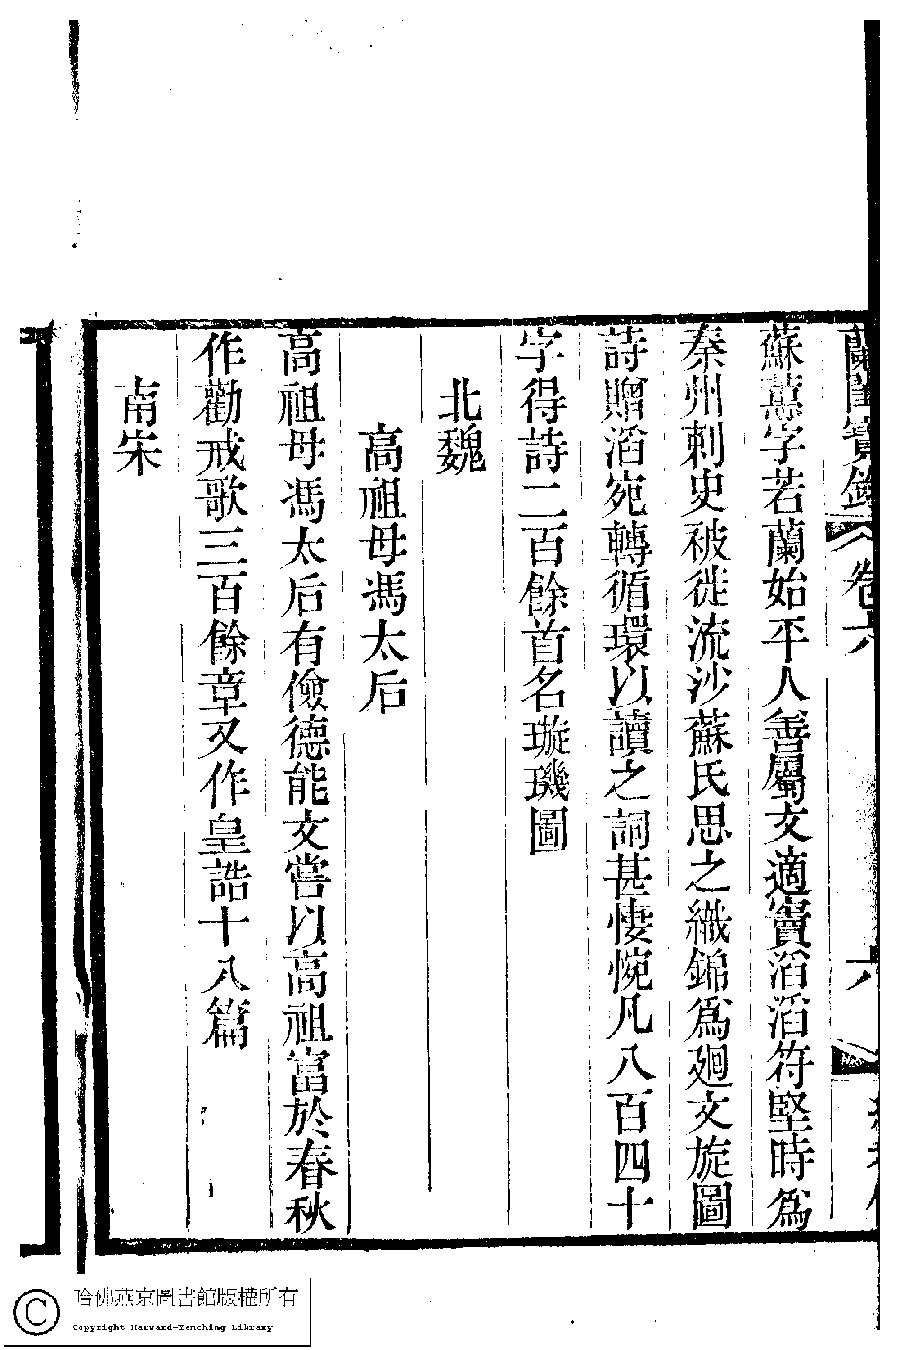 蘭閨寶錄 卷六 六
蘇蕙字若蘭始平人善屬文適竇滔滔符堅時爲
秦州刺史被徙流沙蘇氏思之織錦爲廻文旋圖
詩贈滔宛轉循環以讀之詞甚悽惋凡八百四十
字得詩二百餘首名璇璣圖
北魏
高祖母馮太后
高祖母馮太后有儉德能文嘗以高祖富於春秋
作勸戒歌三百餘章又作皇誥十八篇
南宋
哈佛燕京圖書館版權所有
Copyright Harvard-Yenching Library